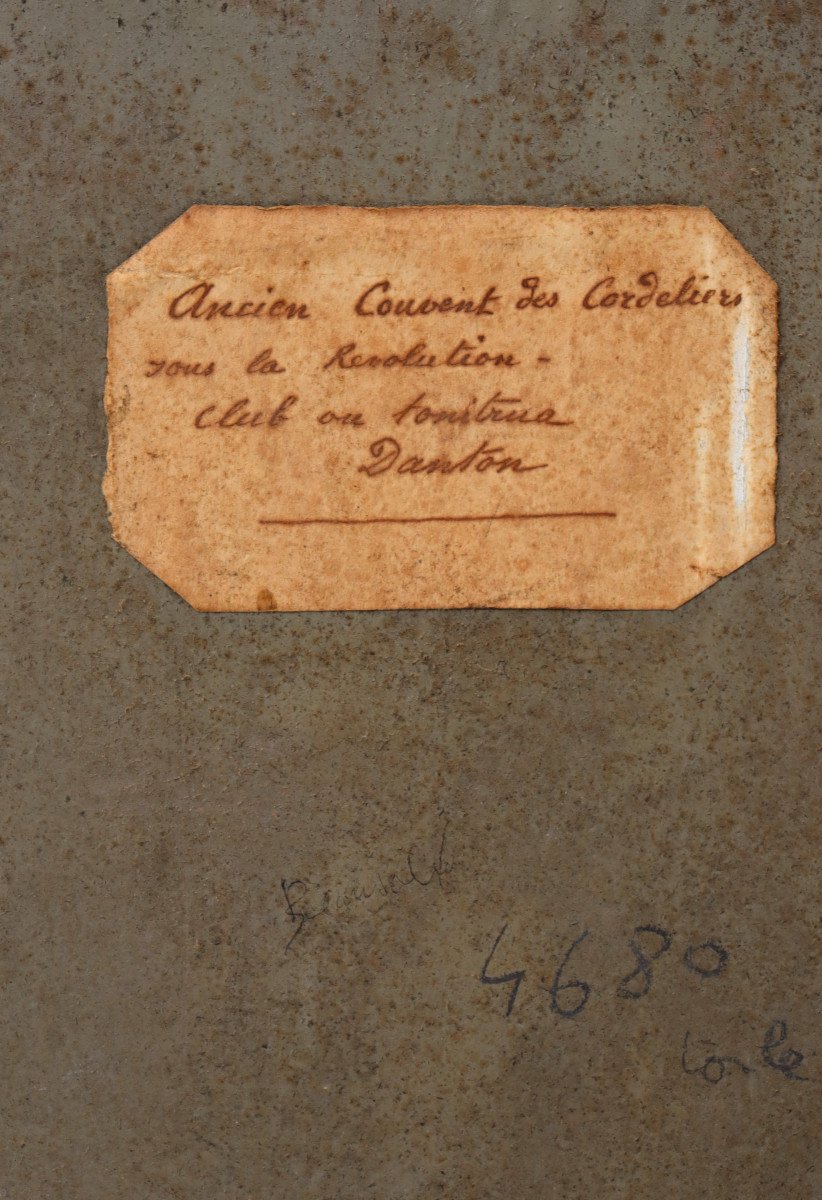 Ancien Couvent des Cordeliers
sous la Revolution -
club ou tonitrua
Danton
4680
toile